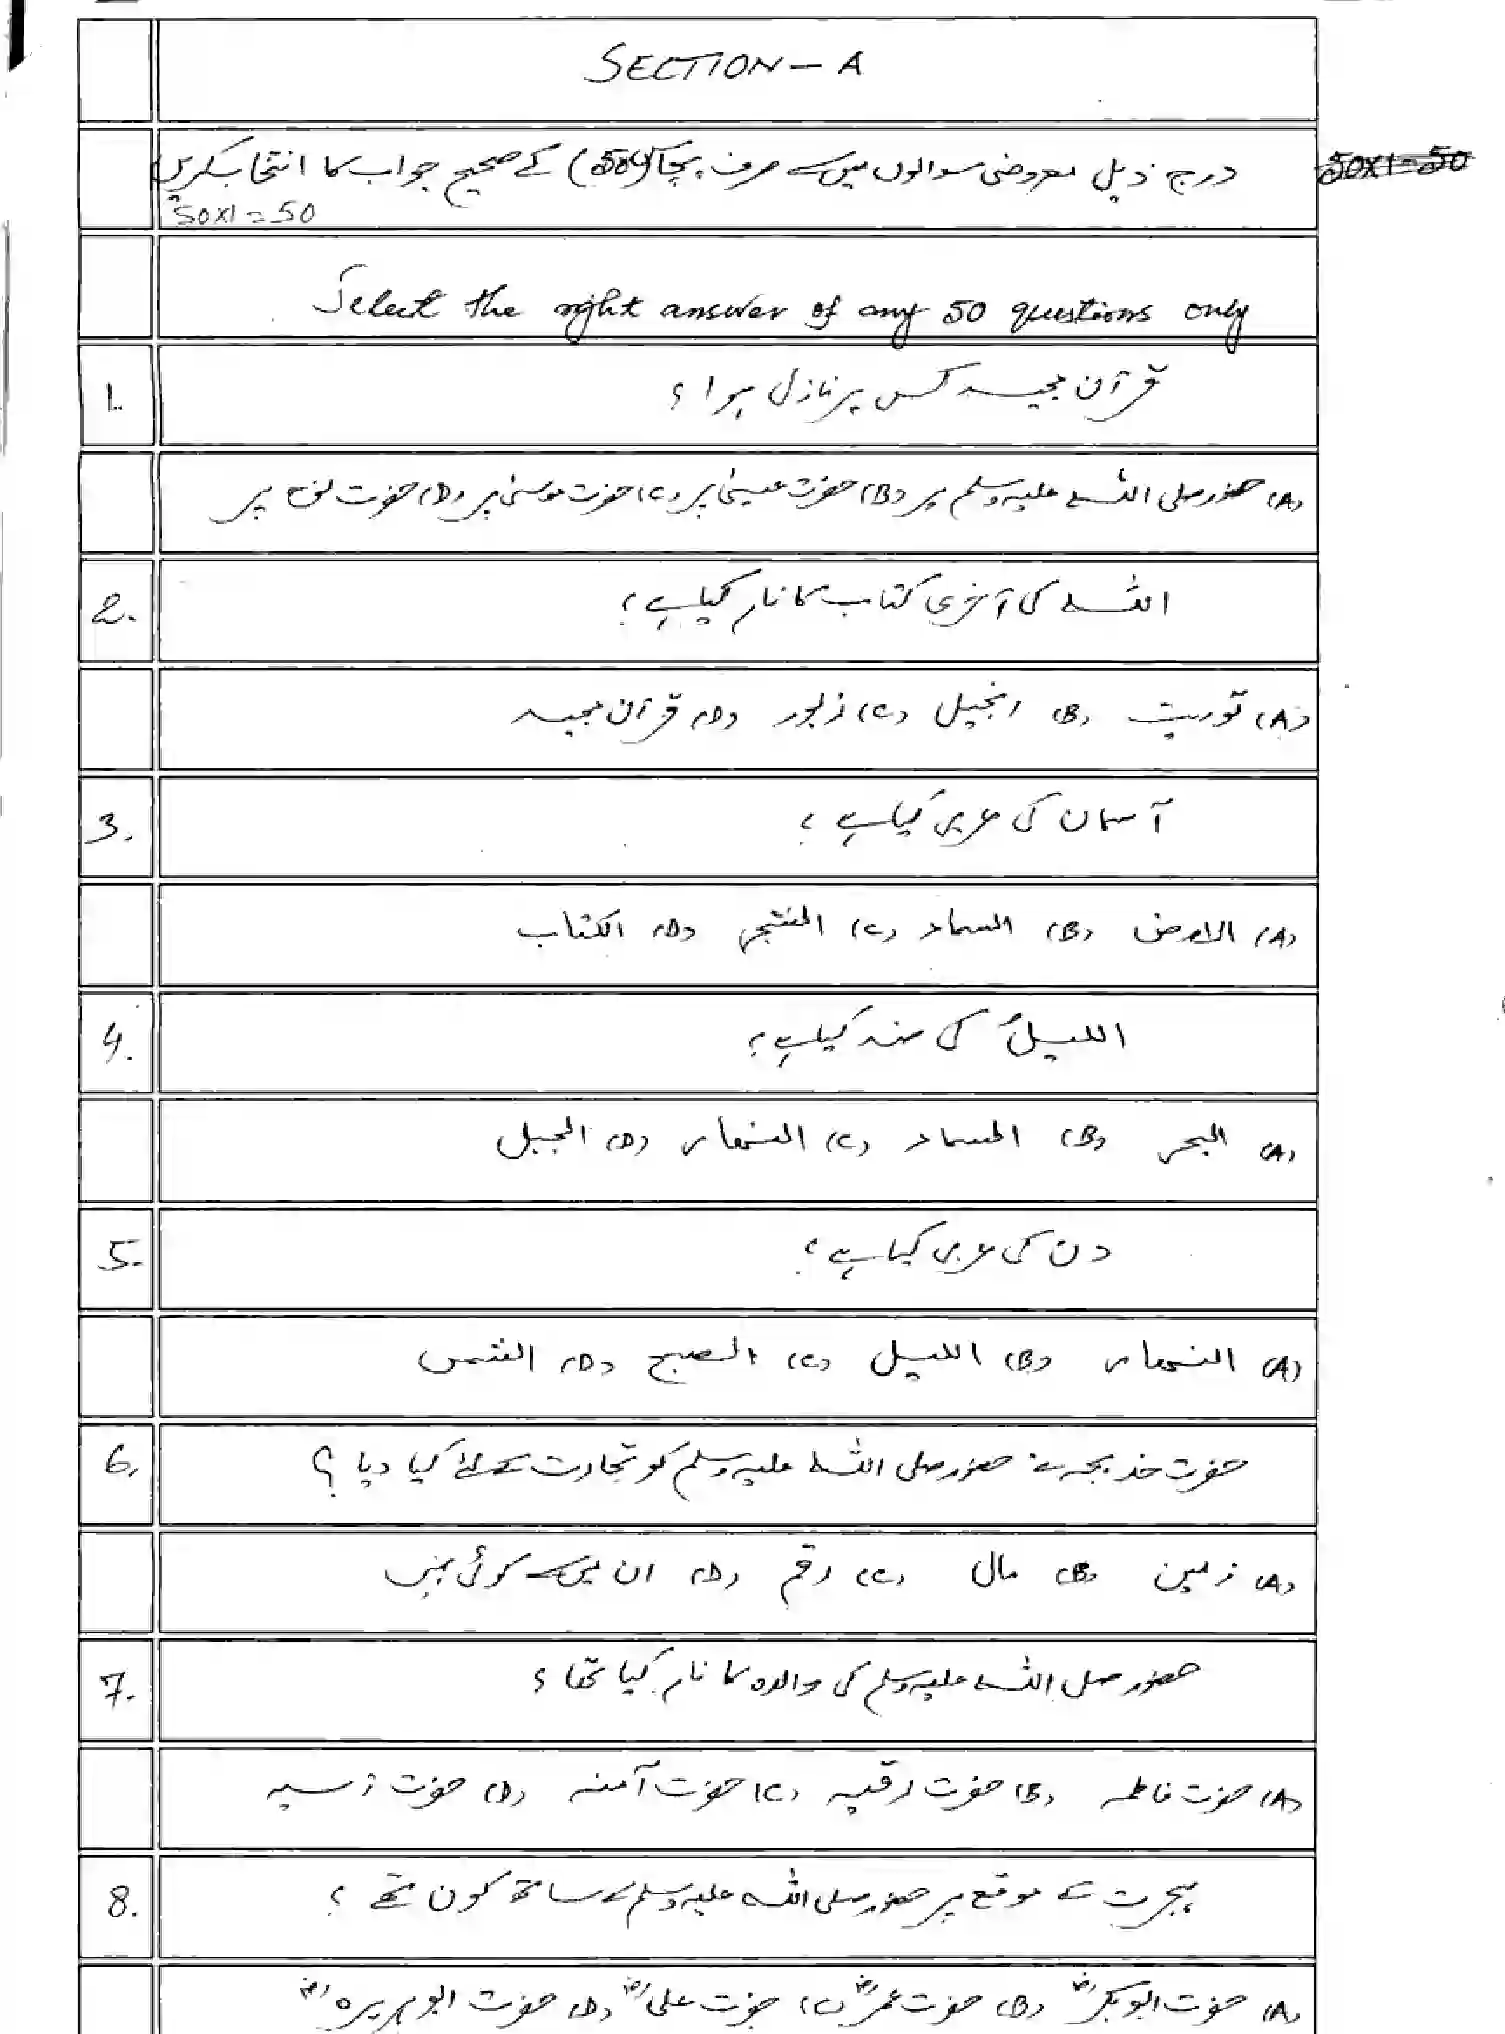 SECTION - A
درج ذیل معروضی سوالوں میں سے صرف پچاس (50) کے صحیح جواب کا انتخاب کریں
50x1=50
50x1=50
Select the right answer of any 50 questions only
1. قرآن مجید کس پر نازل ہوا؟
(A) حضور صلی اللہ علیہ وسلم پر (B) حضرت عیسیٰ پر (C) حضرت موسیٰ پر (D) حضرت نوح پر
2. اللہ کی آخری کتاب کا نام کیا ہے؟
(A) توریت (B) انجیل (C) زبور (D) قرآن مجید
3. آسمان کی عربی کیا ہے؟
(A) الارض (B) السماء (C) (D) الکتاب
4. اللیلُ کی ضد کیا ہے؟
(A) البحر (B) السماء (C) النھار (D) الجبل
5. دن کی عربی کیا ہے؟
(A) النھار (B) اللیل (C) الصبح (D) الشمس
6. حضرت خدیجہ نے حضور صلی اللہ علیہ وسلم کو تجارت کے لئے کیا دیا؟
(A) زمین (B) مال (C) رقم (D) ان میں سے کوئی نہیں
7. حضور صلی اللہ علیہ وسلم کی والدہ کا نام کیا تھا؟
(A) حضرت فاطمہ (B) حضرت رقیہ (C) حضرت آمنہ (D) حضرت
8. ہجرت کے موقع پر حضور صلی اللہ علیہ وسلم کے ساتھ کون تھے؟
(A) حضرت ابوبکرؓ (B) حضرت عمرؓ (C) حضرت علیؓ (D) حضرت ابو ہریرہؓ